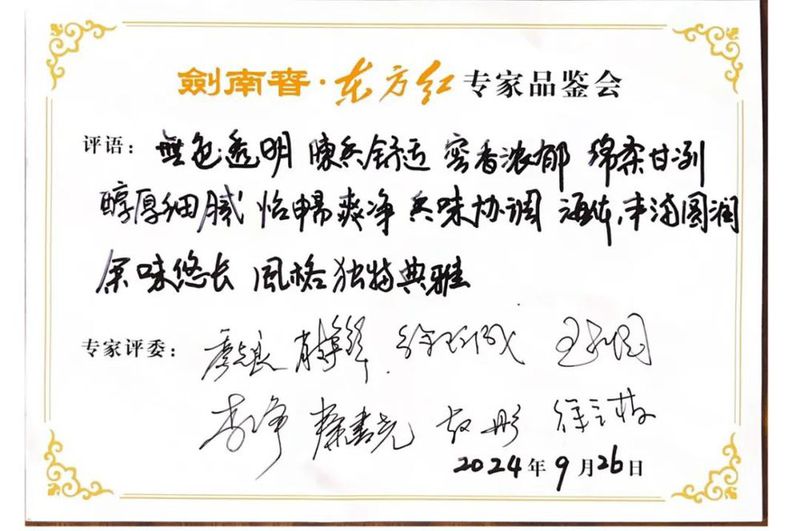 劍南春·东方红 专家品鉴会
评语：無色透明 陳香舒适 窖香浓郁 绵柔甘冽
醇厚细腻 怡畅爽净 香味协调 酒体丰满圆润
余味悠长 風格独特典雅
专家评委：
李净 赵彤
2024年9月26日